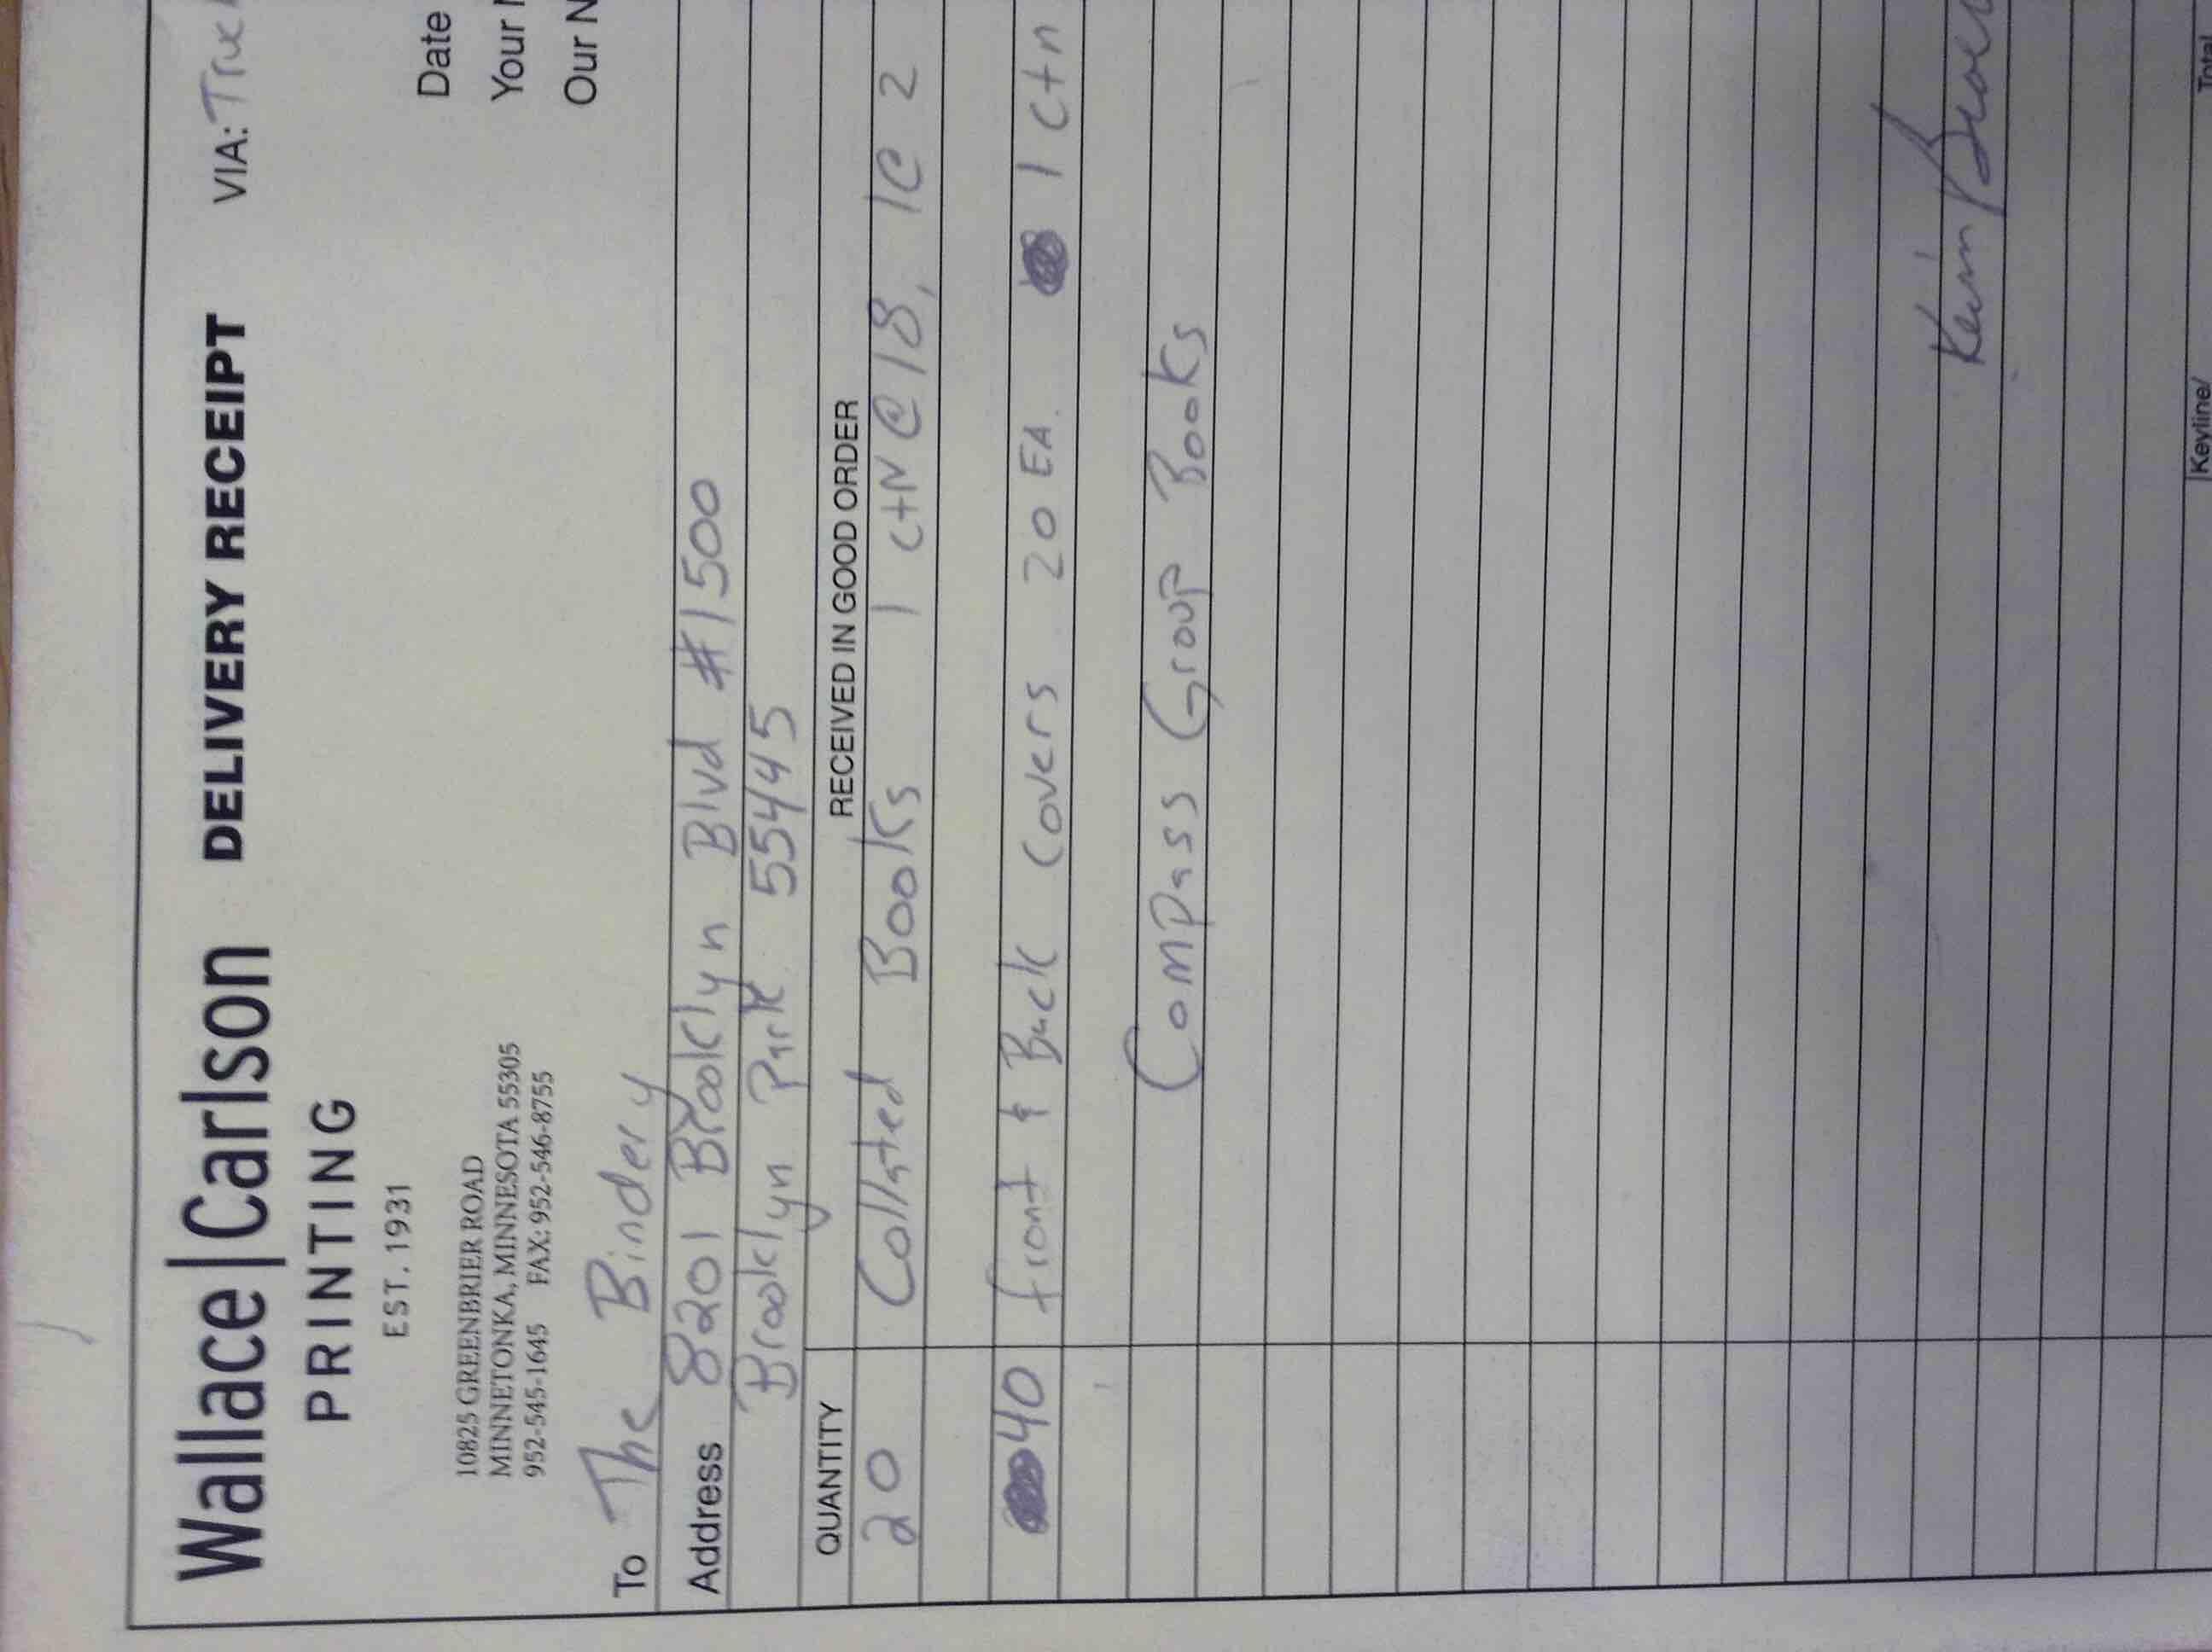 Wallace|Carlson DELIVERY RECEIPT VIA:
PRINTING
EST. 1931
Date
Your
Our
10825 GREENBRIER ROAD
MINNETONKA, MINNESOTA 55305
952-545-1645 FAX: 952-546-8755
To The Bindery
Address 8201 Brooklyn Blvd #1500
Brooklyn Park 55445
QUANTITY RECEIVED IN GOOD ORDER
20 Collated Books 1 ctN @ 18, 1@ 2
40 front & Back Covers 20 EA. 1 ctn
Compass Group Books
Kevin
Keyline/ Total